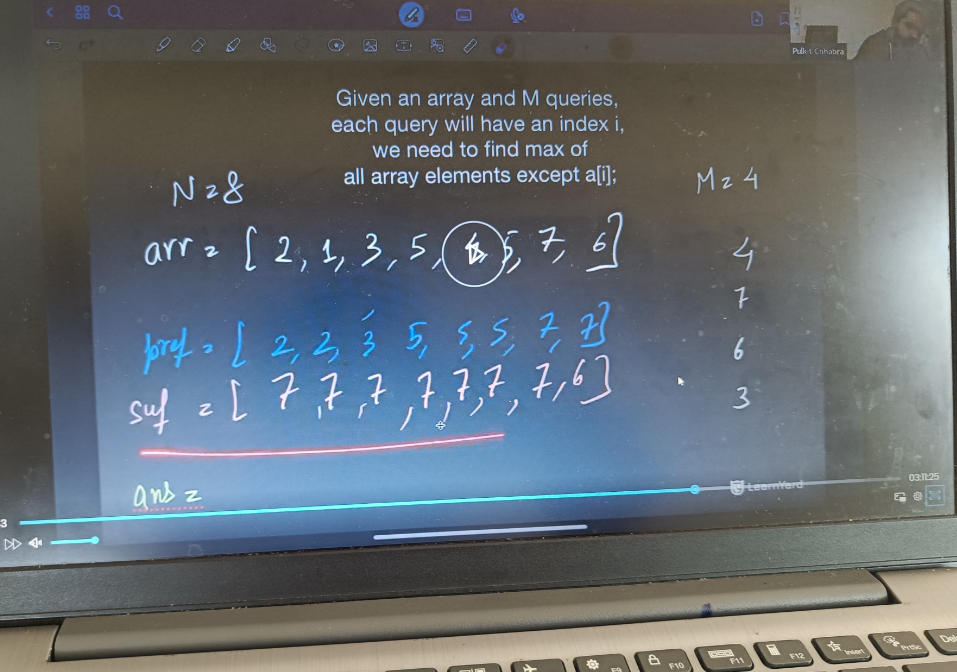 Pulkit Chhabra
Given an array and M queries,
each query will have an index i,
we need to find max of
all array elements except a[i];
N = 8
M = 4
arr = [ 2, 1, 3, 5, 5, 7, 6 ]
4
7
pref = [ 2, 2, 3 5, 5, 5, 7, 7 ]
6
suf = [ 7, 7, 7, 7, 7, 7, 7, 6 ]
3
ans =
LearnYard
03:11:25
3
F9
F10
F11
F12
Insert
PrtSc
Del